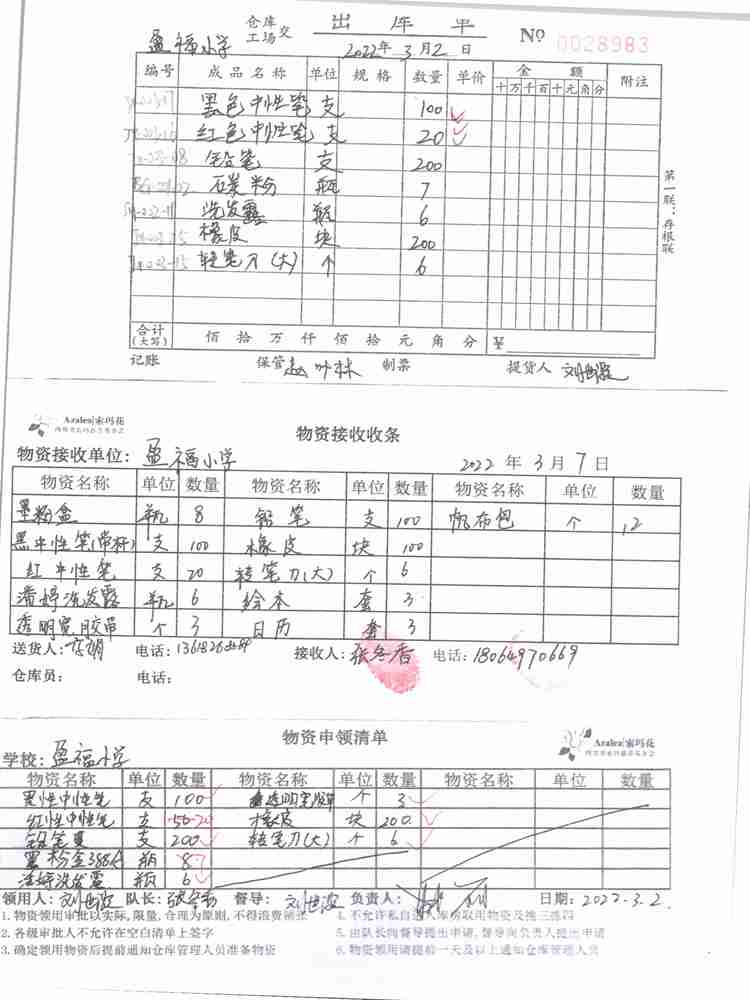 仓库 出库单 № 0028983
工场交
盈福小学 2022年 3月2日
编号 成品名称 单位 规格 数量 单价 金额 附注
十万千百十元角分
黑色中性笔 支 100
红色中性笔 支 20
铅笔 支 200
石炭粉 瓶 7
洗发露 瓶 6
橡皮 块 200
转笔刀(大) 个 6
第一联：存根联
合计(大写) 佰 拾 万 仟 佰 拾 元 角 分 ¥
记账 保管 制票 提货人
Azalea|索玛花
物资接收收条
物资接收单位：盈福小学 2022年3月7日
物资名称 单位 数量 物资名称 单位 数量 物资名称 单位 数量
墨粉盒 瓶 8 铅笔 支 100 帆布包 个 12
黑中性笔(带杯) 支 100 橡皮 块 100
红中性笔 支 20 转笔刀(大) 个 6
潘婷洗发露 瓶 6 绘本 套 3
透明宽胶带 个 3 日历 套 3
送货人： 电话： 接收人：张冬香 电话：18064970669
仓库员： 电话：
物资申领清单
Azalea|索玛花
学校：盈福小学
物资名称 单位 数量 物资名称 单位 数量 物资名称 单位 数量
黑性中性笔 支 100 透明宽胶带 个 3
红性中性笔 支 50 20 橡皮 块 200
铅笔 支 200 转笔刀(大) 个 6
墨粉盒388A 瓶 8
潘婷洗发露 瓶 6
领用人： 队长： 督导： 负责人： 日期：2022-3.2.
1.物资领用审批以实际,限量,合理为原则,不得浪费 4.不允许私自进入库房取用物资及挑三拣四
2.各级审批人不允许在空白清单上签字 5.由队长向督导提出申请,督导向负责人提出申请
3.确定领用物资后提前通知仓库管理人员准备物资 6.物资领用请提前一天及以上通知仓库管理人员